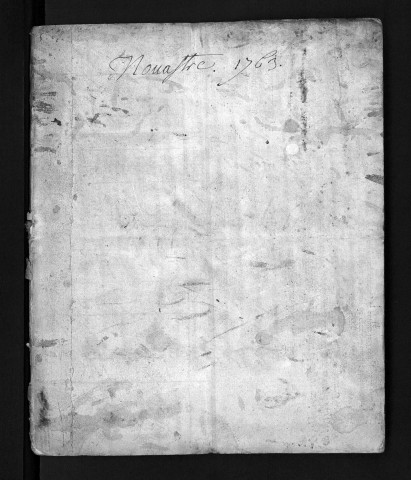 Nouastre. 1763.